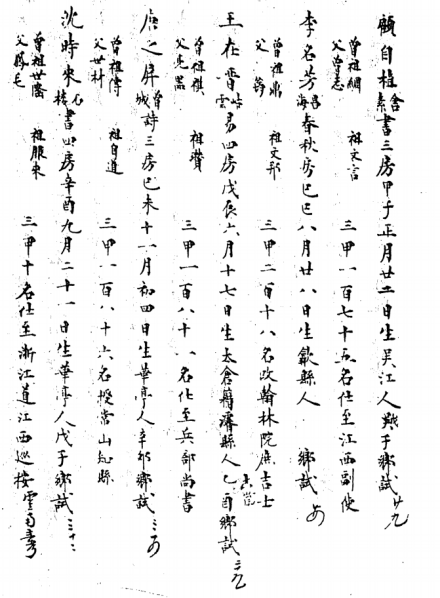 顧自植 養素 書三房甲子正月廿二日生吳江人戊子鄉試廿九
曾祖綱 祖文言
父曾志 三甲一百七十五名仕至江西副使
李名芳 昌海 春秋房己巳八月廿八日生歙縣人 鄉試
曾祖鼎 祖文邦
父 三甲二百十八名改翰林院庶吉士
王在晋 岵雲 易四房戊辰六月十七日生太倉籍濬縣人乙酉鄉試三九
曾祖祺 祖贊
父 三甲一百八十八名仕至兵部尚書
唐之屏 曾城 詩三房己未十一月初四日生華亭人辛卯鄉試
曾祖傅 祖自道
父世 三甲一百八十六名授常山知縣
沈時來 書四房辛酉九月二十一日生華亭人戊子鄉試三十二
曾祖世 祖
父 三甲十名仕至浙江道江西巡按